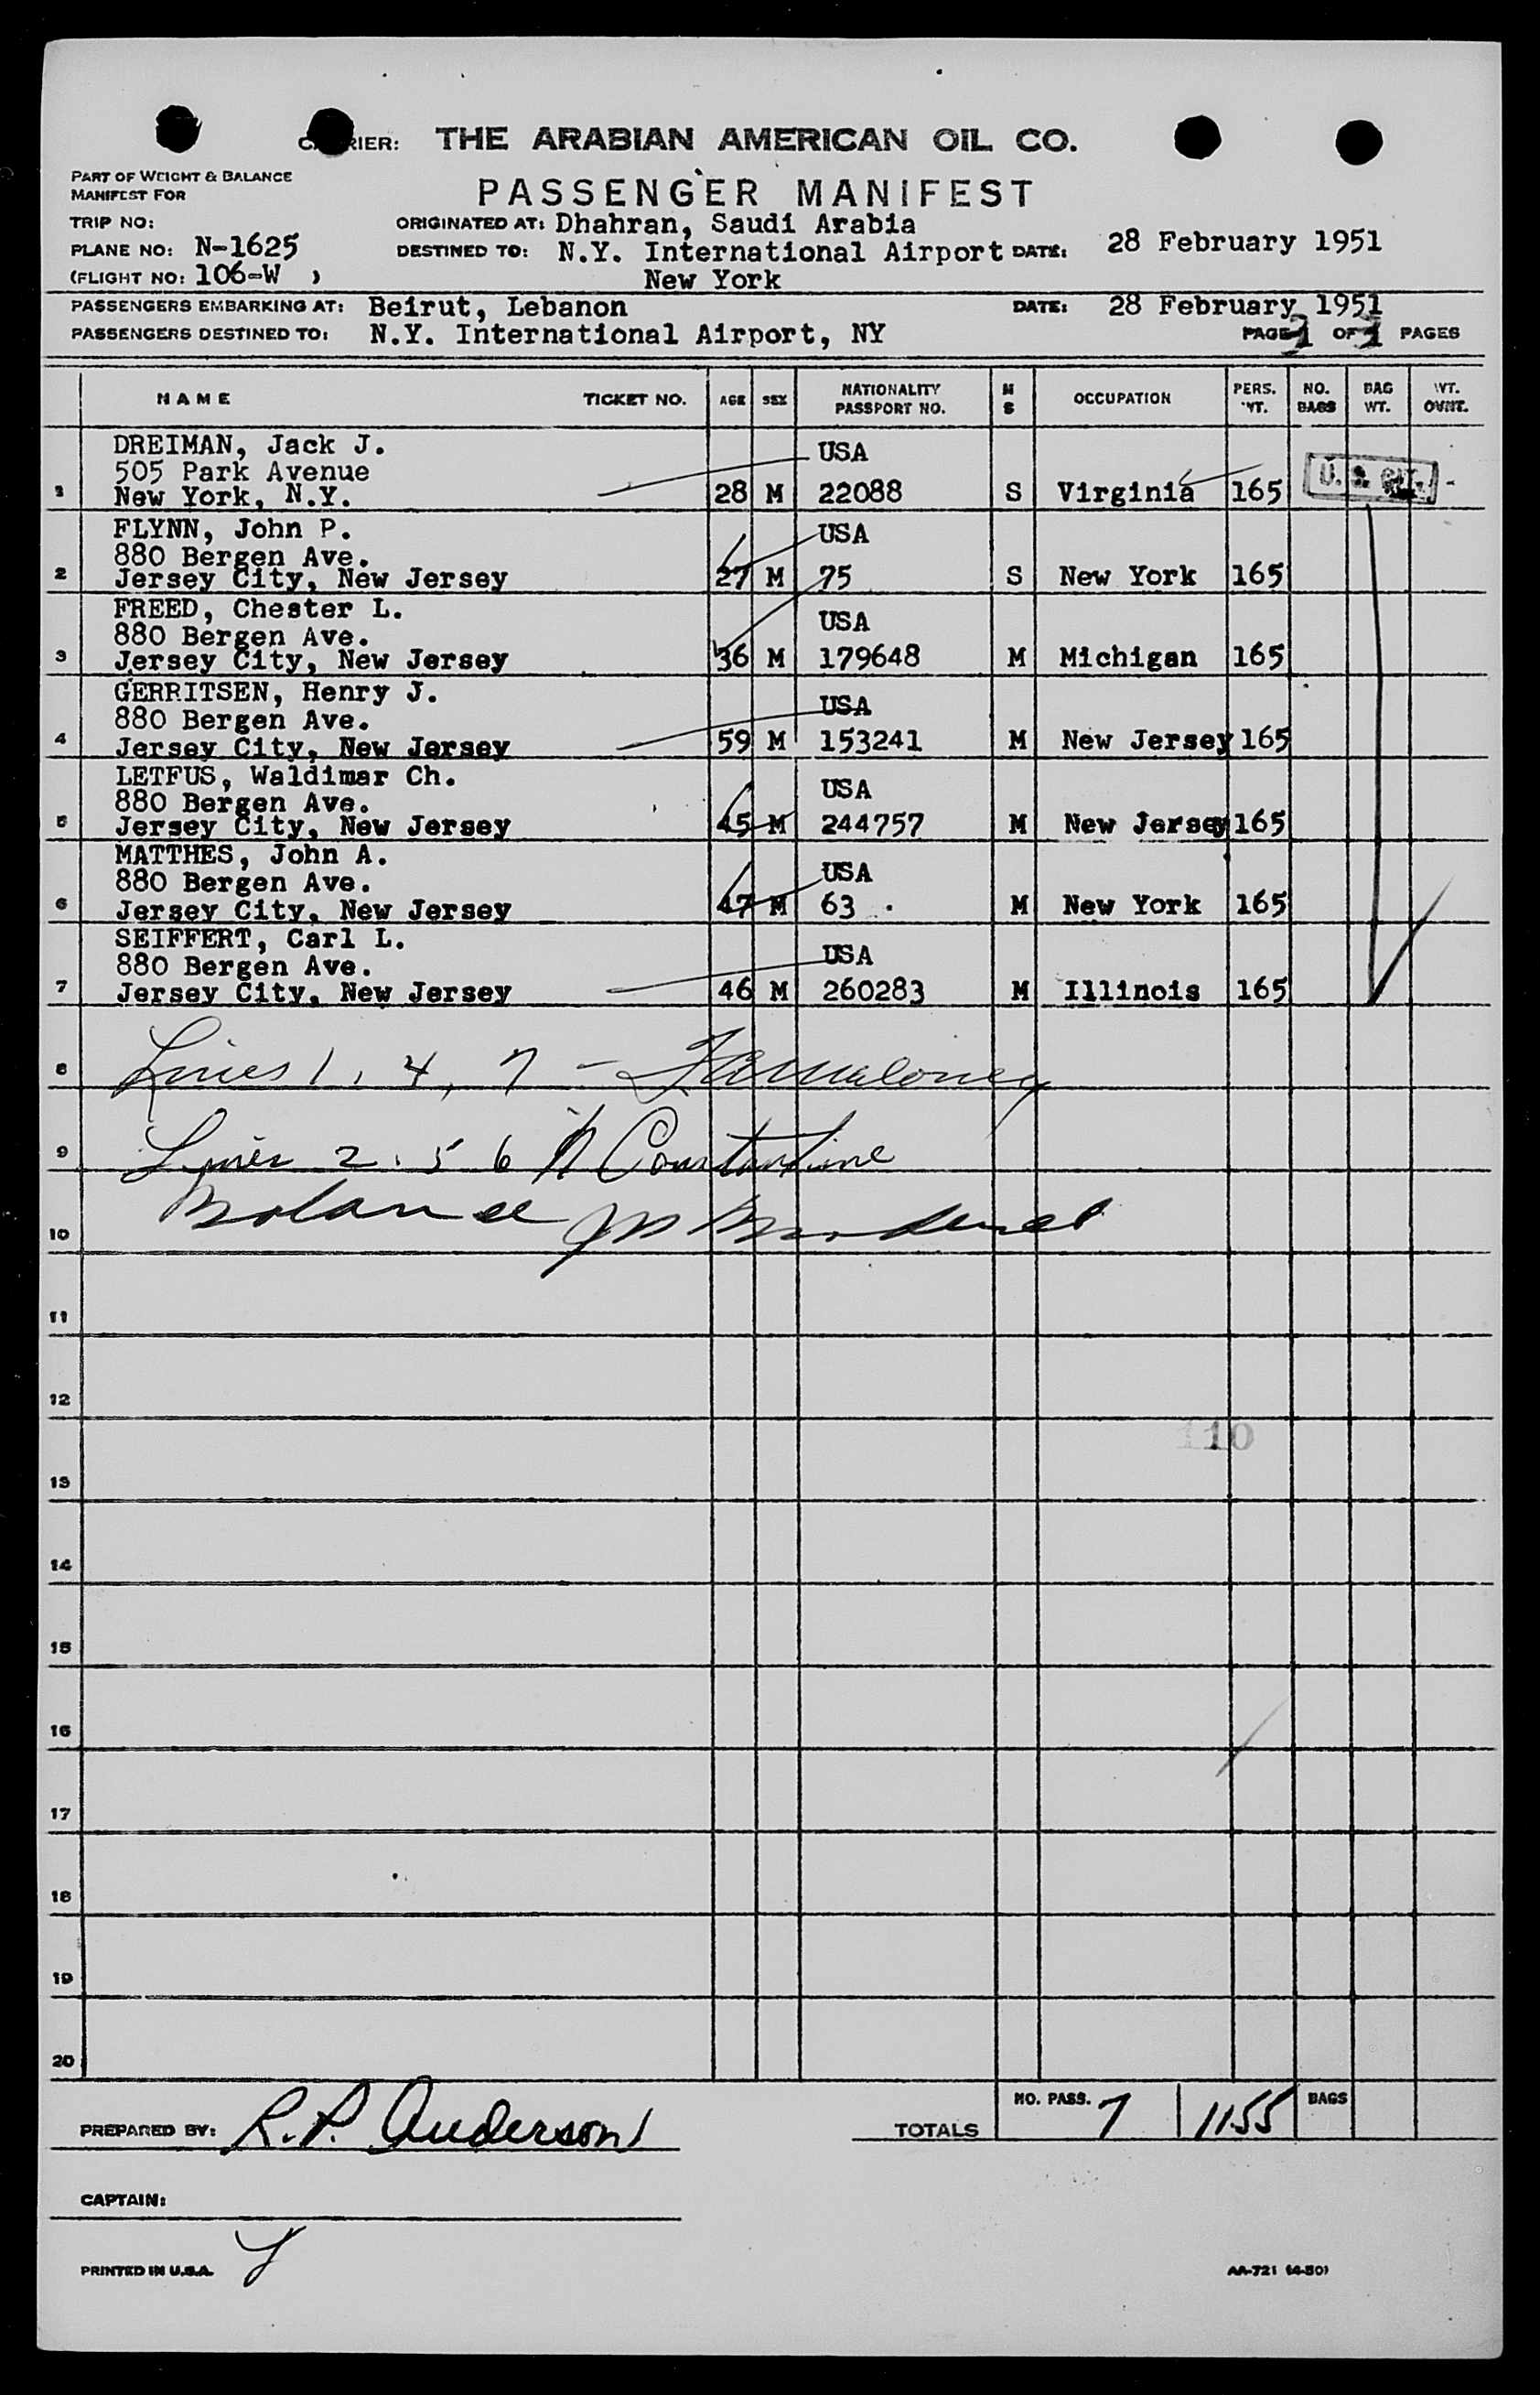 CARRIER: THE ARABIAN AMERICAN OIL CO.
PART OF WEIGHT & BALANCE
MANIFEST FOR
PASSENGER MANIFEST
TRIP NO:
ORIGINATED AT: Dhahran, Saudi Arabia
PLANE NO: N-1625
DESTINED TO: N.Y. International Airport DATE: 28 February 1951
(FLIGHT NO: 106-W )
New York
PASSENGERS EMBARKING AT: Beirut, Lebanon DATE: 28 February 1951
PASSENGERS DESTINED TO: N.Y. International Airport, NY PAGE OF PAGES
NAME TICKET NO. AGE SEX NATIONALITY PASSPORT NO. M S OCCUPATION PERS. WT. NO. BAGS BAG WT. WT. OVWT.
DREIMAN, Jack J. USA
505 Park Avenue
1 New York, N.Y. 28 M 22088 S Virginia 165 U. S.
FLYNN, John P. USA
880 Bergen Ave.
2 Jersey City, New Jersey 27 M 75 S New York 165
FREED, Chester L. USA
880 Bergen Ave.
3 Jersey City, New Jersey 36 M 179648 M Michigan 165
GERRITSEN, Henry J. USA
880 Bergen Ave.
4 Jersey City, New Jersey 59 M 153241 M New Jersey 165
LETFUS, Waldimar Ch. USA
880 Bergen Ave.
5 Jersey City, New Jersey 45 M 244757 M New Jersey 165
MATTHES, John A. USA
880 Bergen Ave.
6 Jersey City, New Jersey 47 M 63 M New York 165
SEIFFERT, Carl L. USA
880 Bergen Ave.
7 Jersey City, New Jersey 46 M 260283 M Illinois 165
8 Lines 1, 4, 7 - Maloney
9 Lines 2. 5 6 N Constantine
10 Balance
11
12
110
13
14
15
16
17
18
19
20
PREPARED BY: R.P. Anderson TOTALS NO. PASS. 7 1155 BAGS
CAPTAIN:
PRINTED IN U.S.A. AA-721 (4-50)